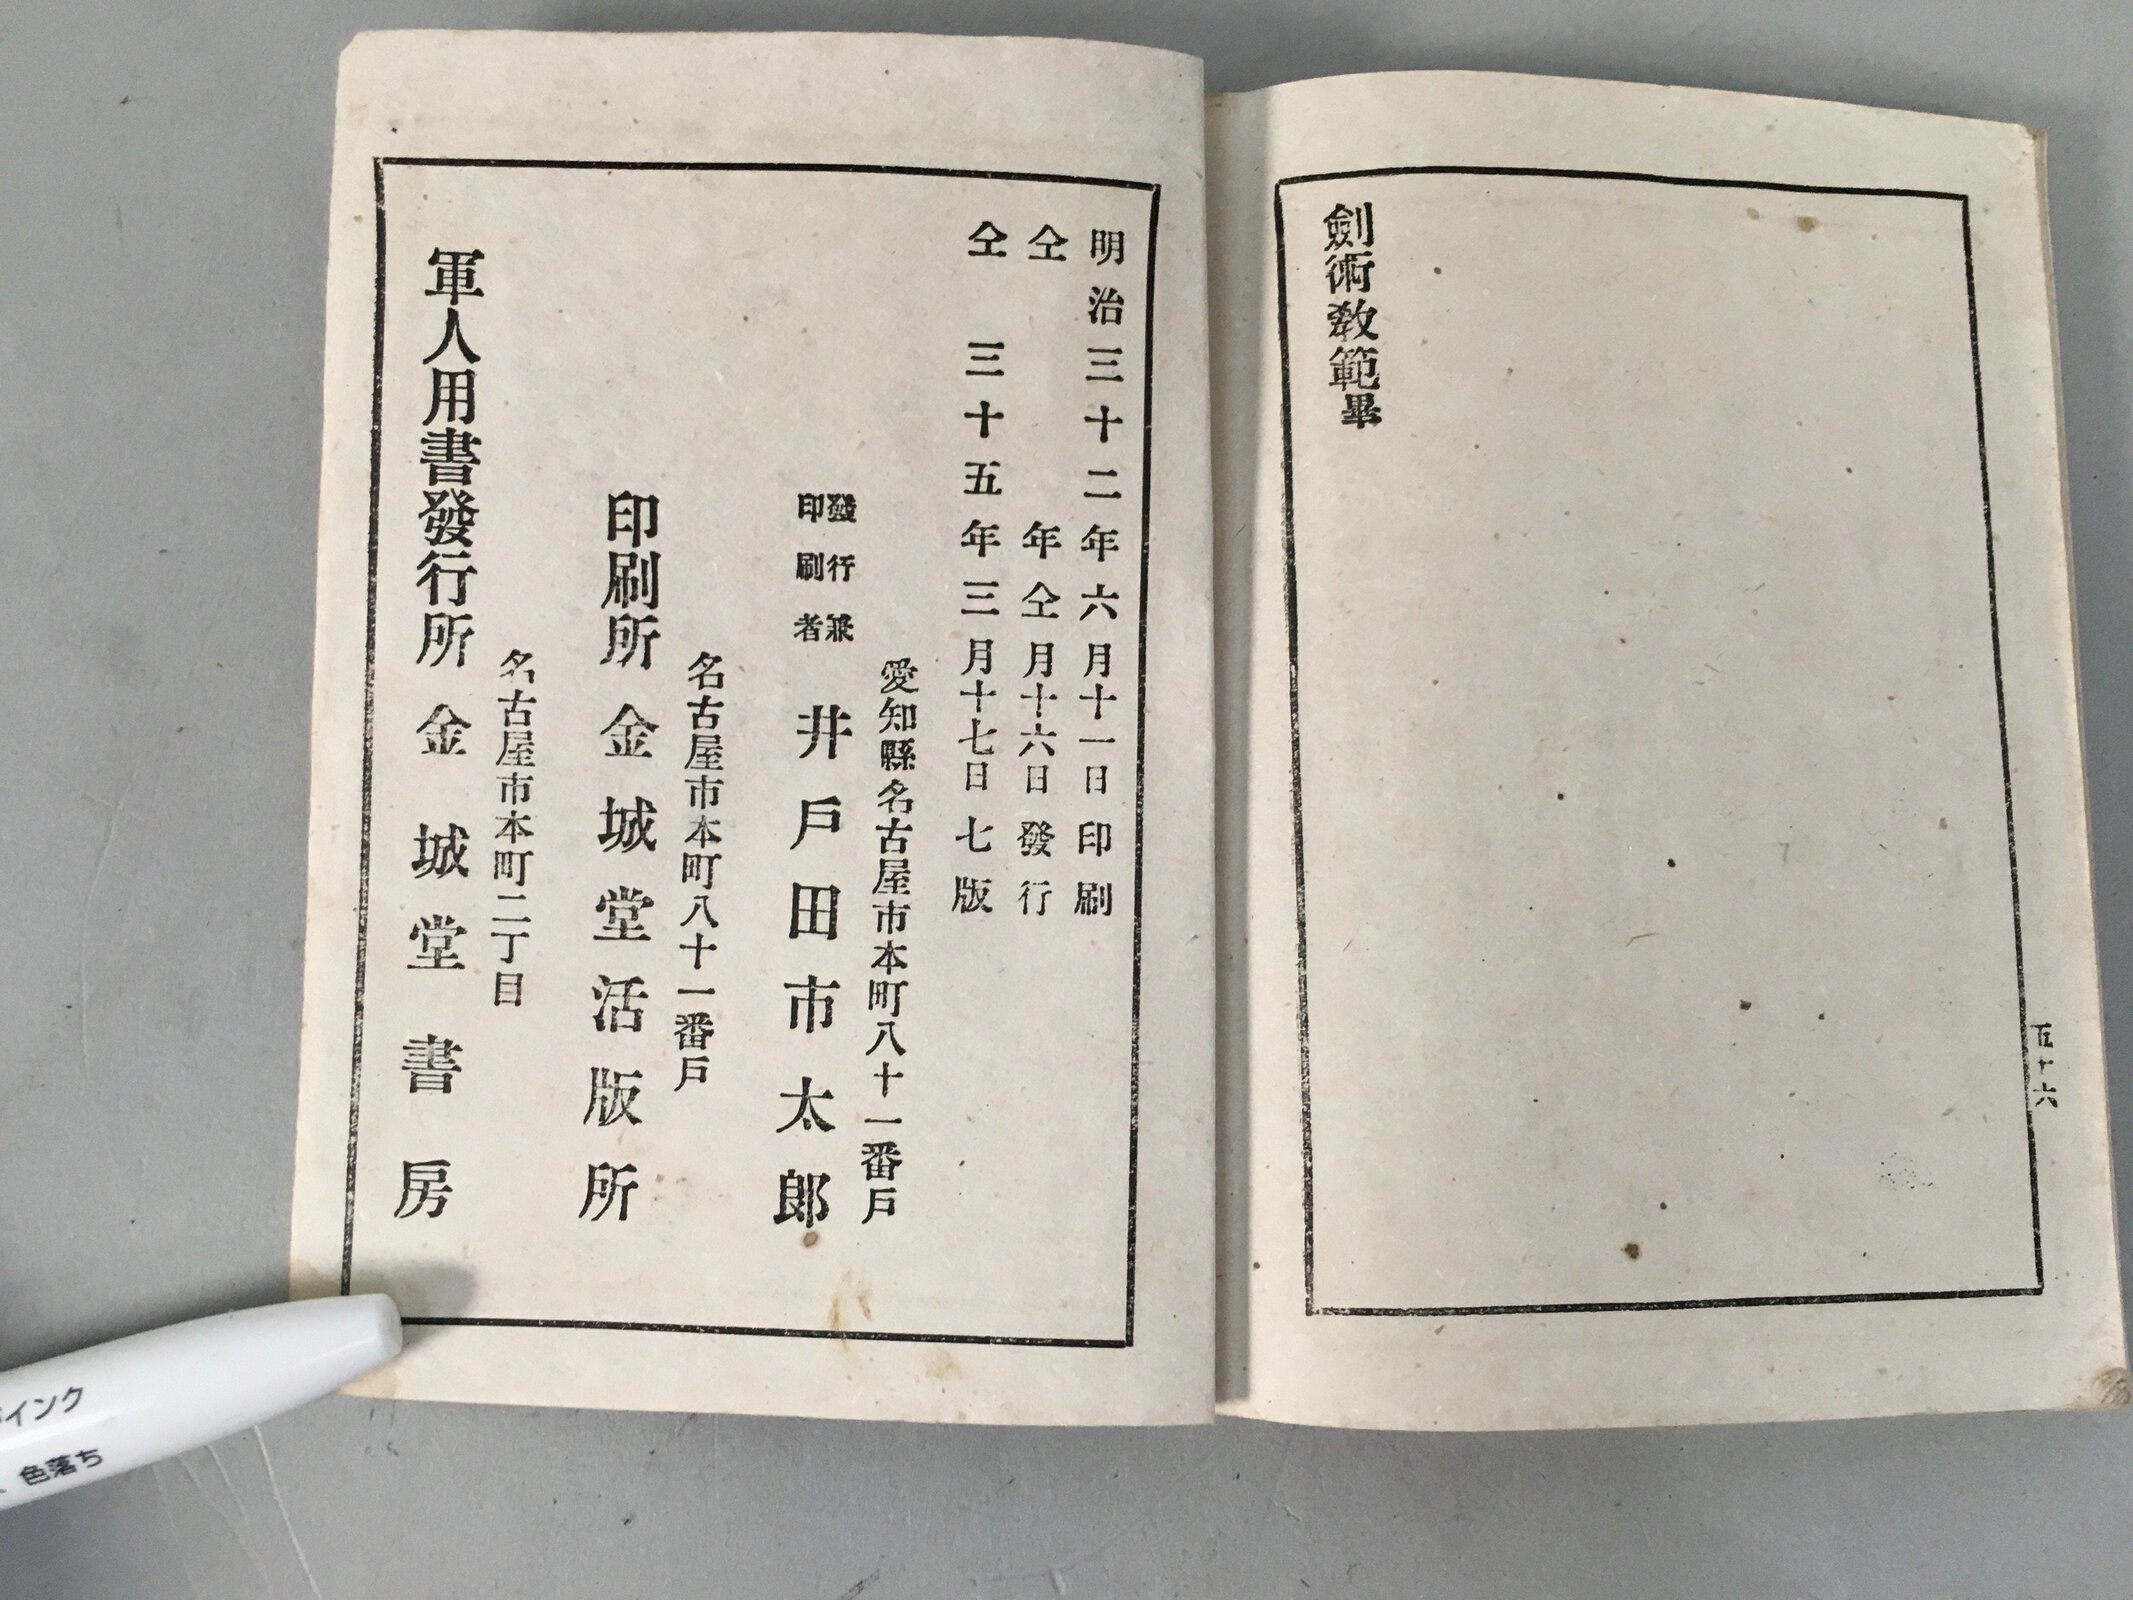 劍術敎範畢
五十六
明治三十二年六月十一日印刷
仝年仝月十六日發行
仝三十五年三月十七日七版
愛知縣名古屋市本町八十一番戶
發行兼
印刷者
井戶田市太郎
名古屋市本町八十一番戶
印刷所金城堂活版所
名古屋市本町二丁目
軍人用書發行所金城堂書房
インク
色落ち